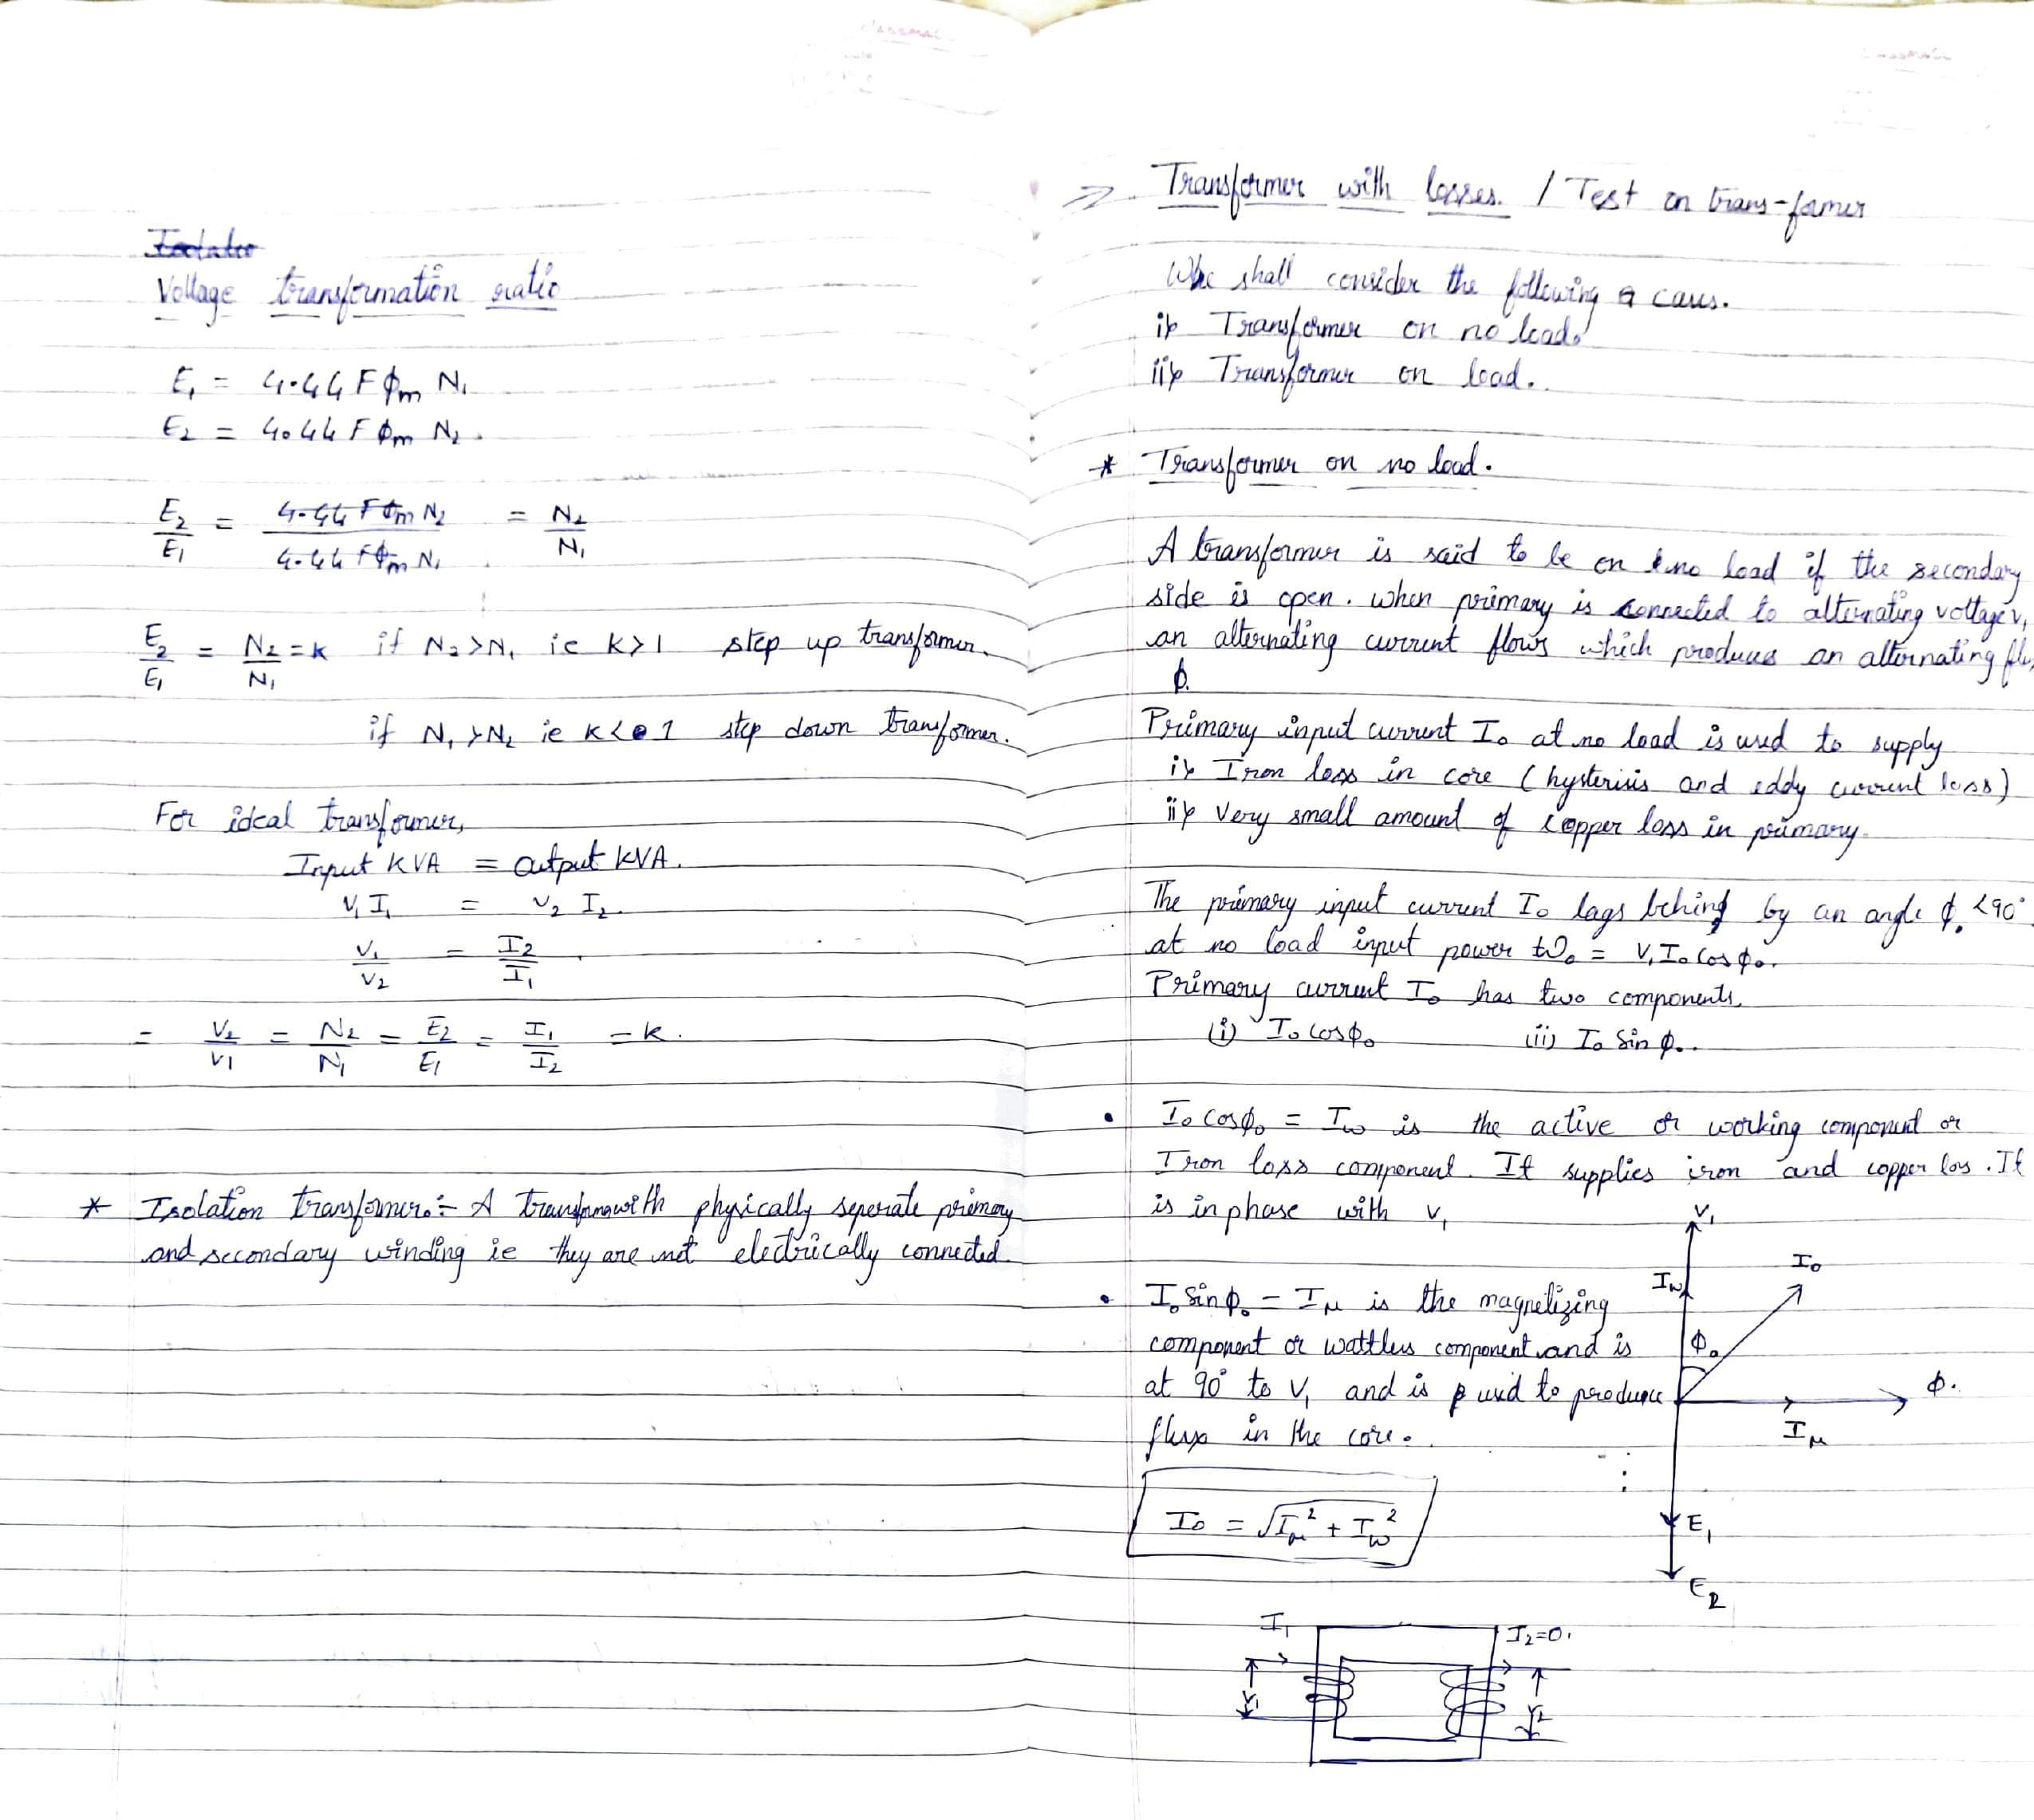 Voltage transformation ratio
E₁ = 4.44 F ϕm N₁
E₂ = 4.44 F ϕm N₂.
E₂/E₁ = 4.44 F ϕm N₂ / 4.44 F ϕm N₁ = N₂/N₁
E₂/E₁ = N₂/N₁ = K if N₂ > N₁ ie K > 1 step up transformer.
if N₁ > N₂ ie K < 1 step down transformer.
For ideal transformer,
Input KVA = output KVA.
V₁ I₁ = V₂ I₂
V₁/V₂ = I₂/I₁
= V₂/V₁ = N₂/N₁ = E₂/E₁ = I₁/I₂ = k.
* Isolation transformer:- A transfrmawith physically seperate primary
and secondary winding ie they are not electrically connected.
Transformer with losses. / Test on trans-former
shall consider the following caus.
i) Transformer on no load.
ii) Transformer on load.
* Transformer on no load.
A transformer is said to be on no load if the secondary
side is open. when primary is connected to alternating voltage V₁
an alternating current flows which produces an alternating
ϕ.
Primary input current I₀ at no load is used to supply
i) Iron loss in core (hysterisis and eddy current loss)
ii) Very small amount of copper loss in primary.
The primary input current I₀ lags behind by an angle ϕ₀ <90°
at no load input power W₀ = V₁ I₀ cos ϕ₀.
Primary current I₀ has two components
(i) I₀ cosϕ₀ (ii) I₀ Sin ϕ₀.
• I₀ cosϕ₀ = Iw is the active or working component or
Iron loss component. It supplies iron and copper loss. It
is in phase with V₁
• I₀ Sinϕ₀ = Iμ is the magnetizing
component or wattless component and is
at 90° to V₁ and is used to produce
flux in the core.
I₀ = √Iμ² + Iw²
V₁
Iw
I₀
ϕ₀
ϕ.
Iμ
E₁
E₂
I₁
I₂=0.
V₁
V₂